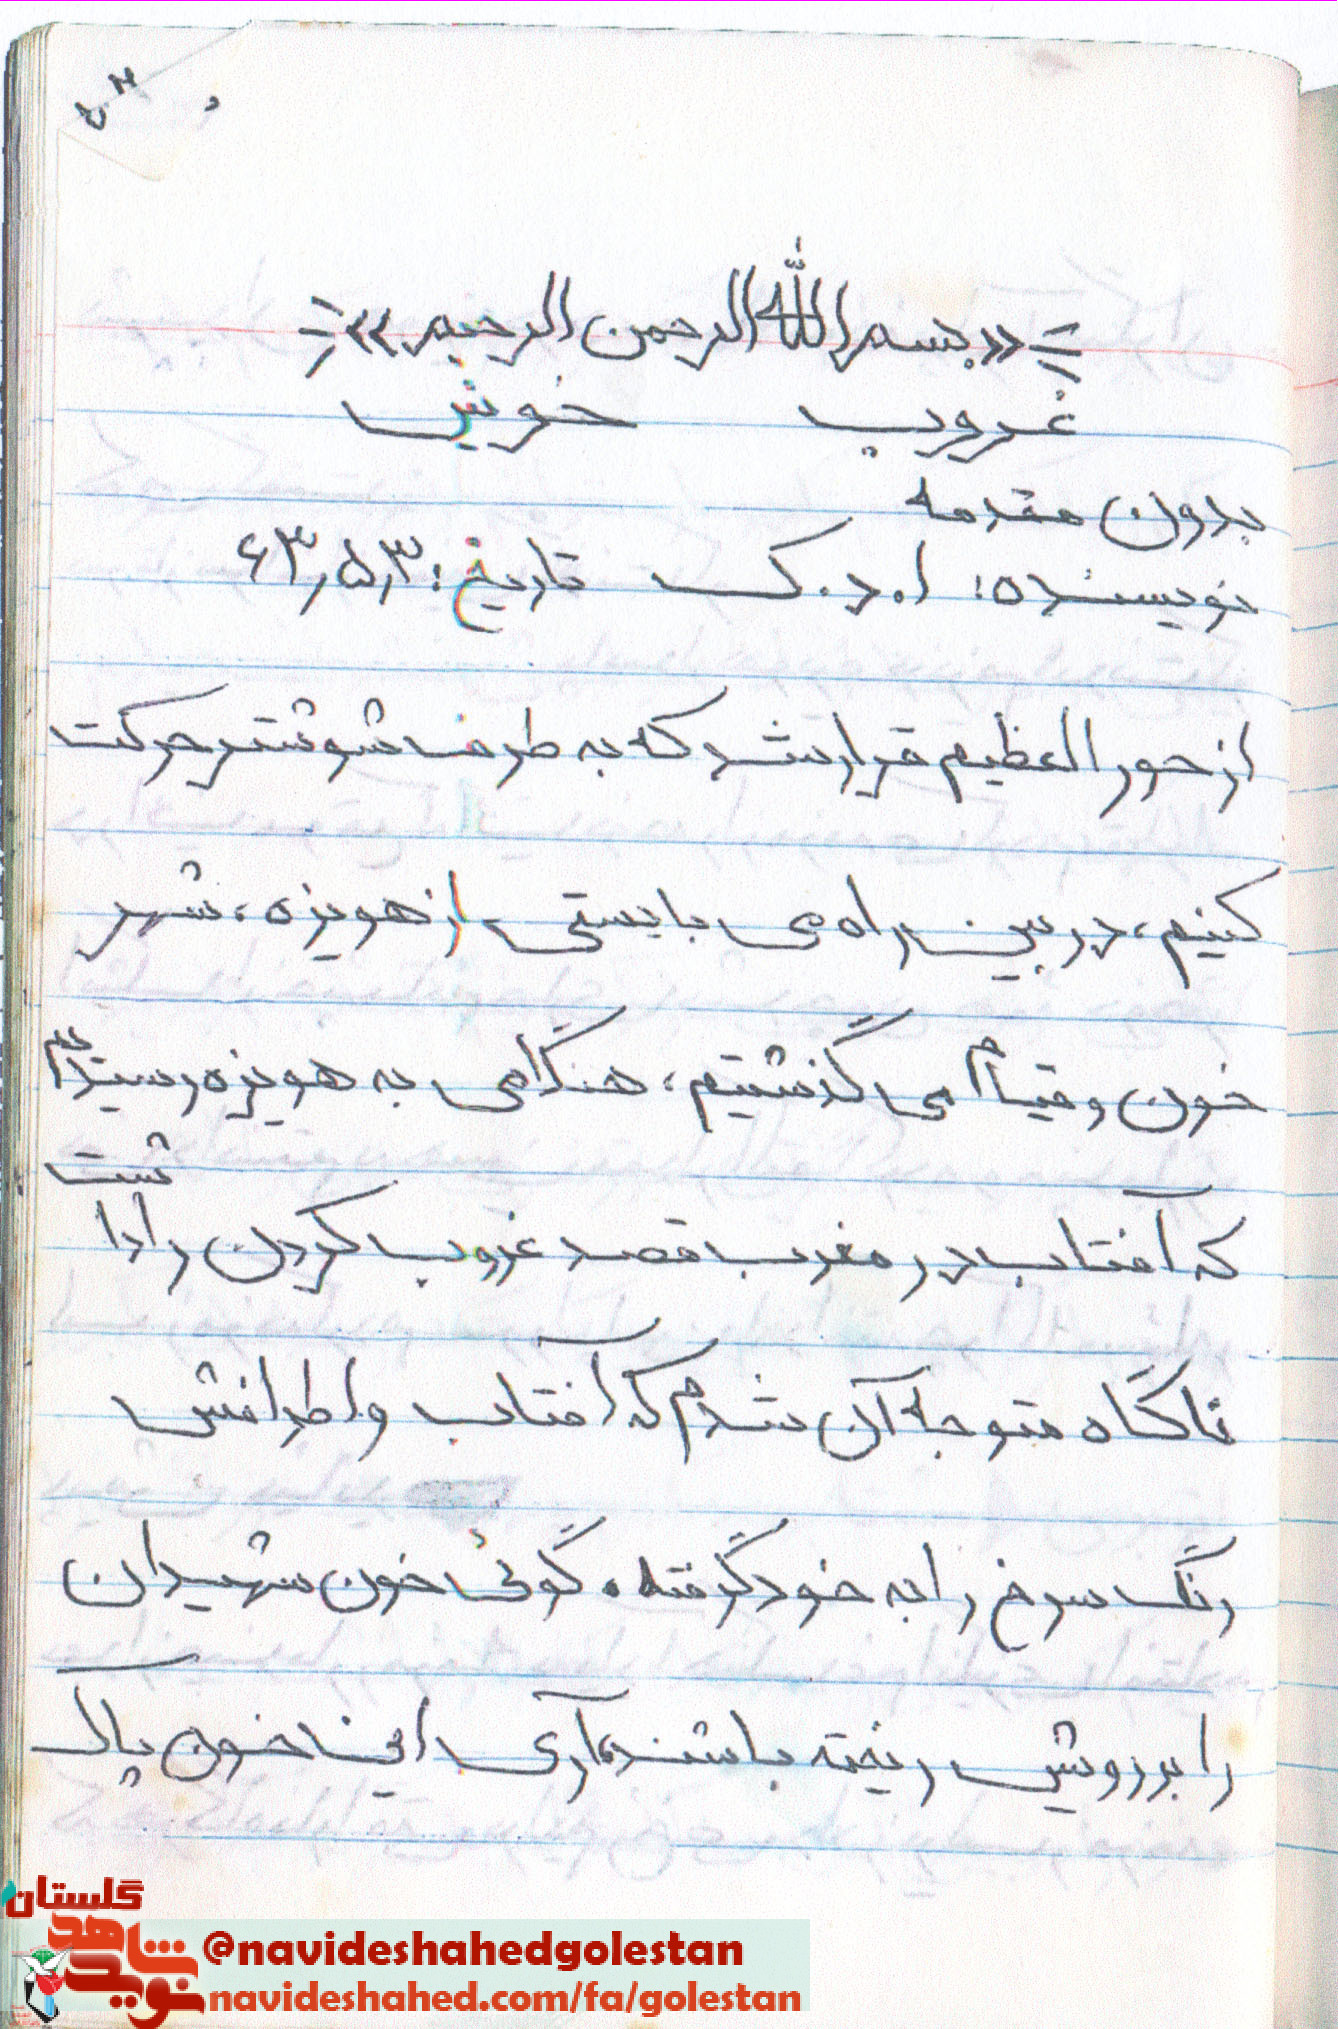 ۵۳
«بسم الله الرحمن الرحیم»
غروب خونین
بدون مقدمه
نویسنده: ا.د.ک تاریخ: ۶۳,۵,۳
از حور العظیم قرار شد که به طرف شوشتر حرکت
کنیم، در بین راه می بایستی از هویزه، شهر
خون و قیام می گذشتیم، هنگامی به هویزه رسیدیم
که آفتاب در مغرب قصد غروب کردن را داشت
ناگاه متوجه آن شدم که آفتاب و اطرافش
رنگ سرخ را به خود گرفته، گوئی خون شهیدان
را بر رویش ریخته باشند، آری این خون پاک
گلستان
نوید شاهد
@navideshahedgolestan
navideshahed.com/fa/golestan